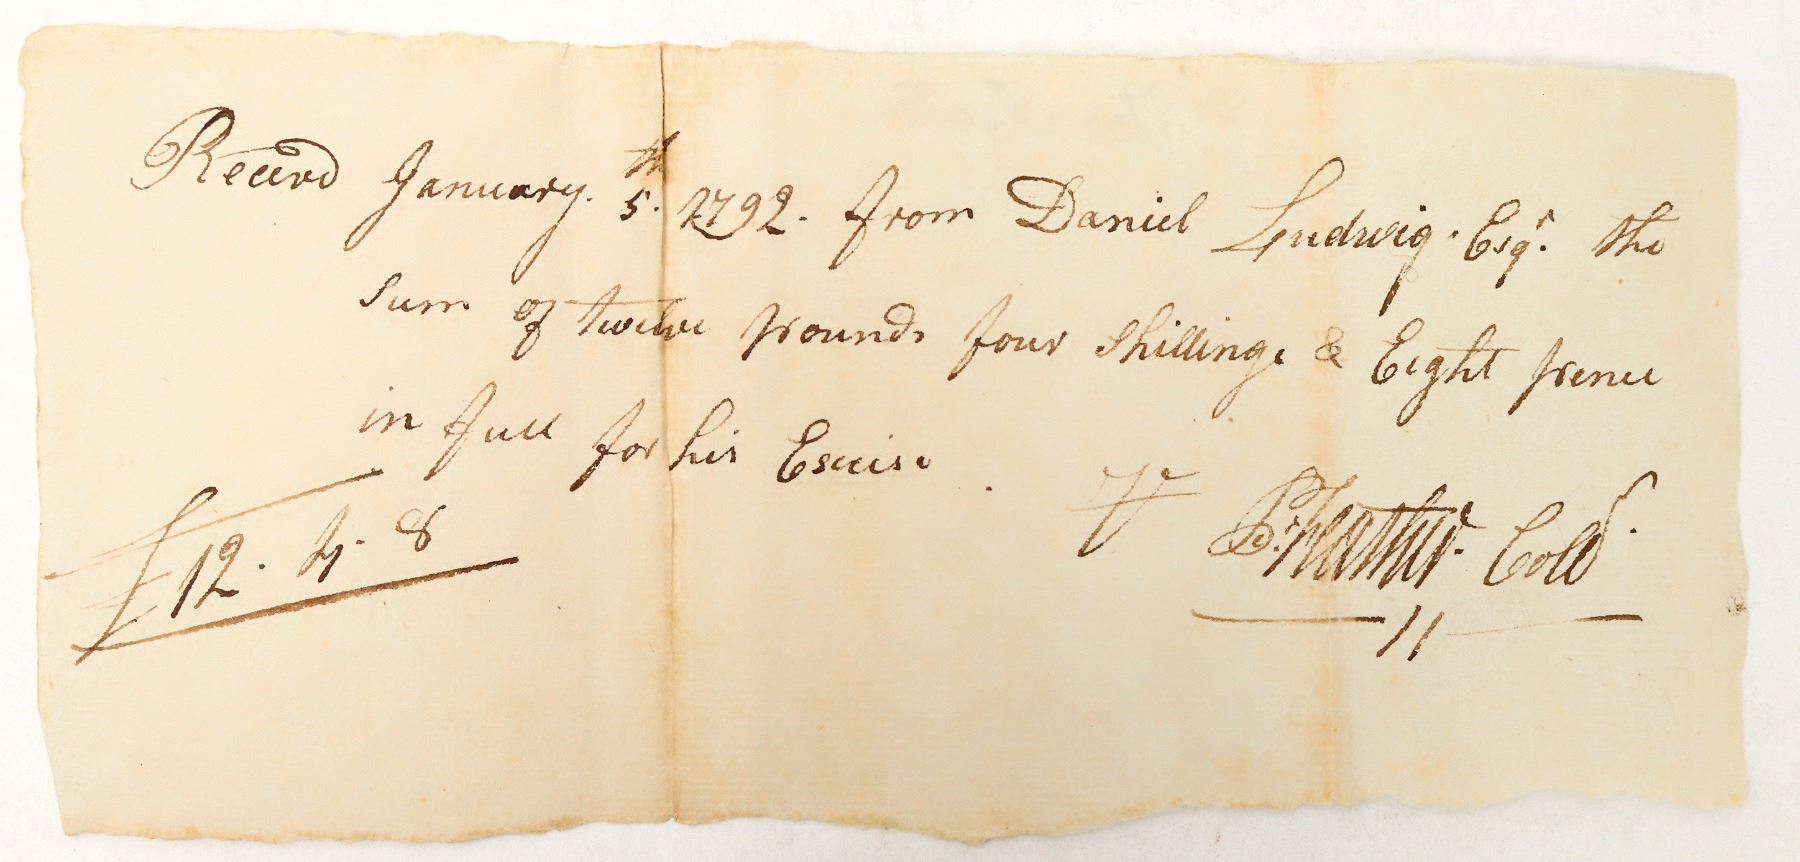 Receivd January. 5th. 1792. from Daniel Ludwig. Esqr. the
Sum of twelve pounds four Shillings & Eight pence
in full for his Excise.
£ 12. 4. 8
Pr Collr.